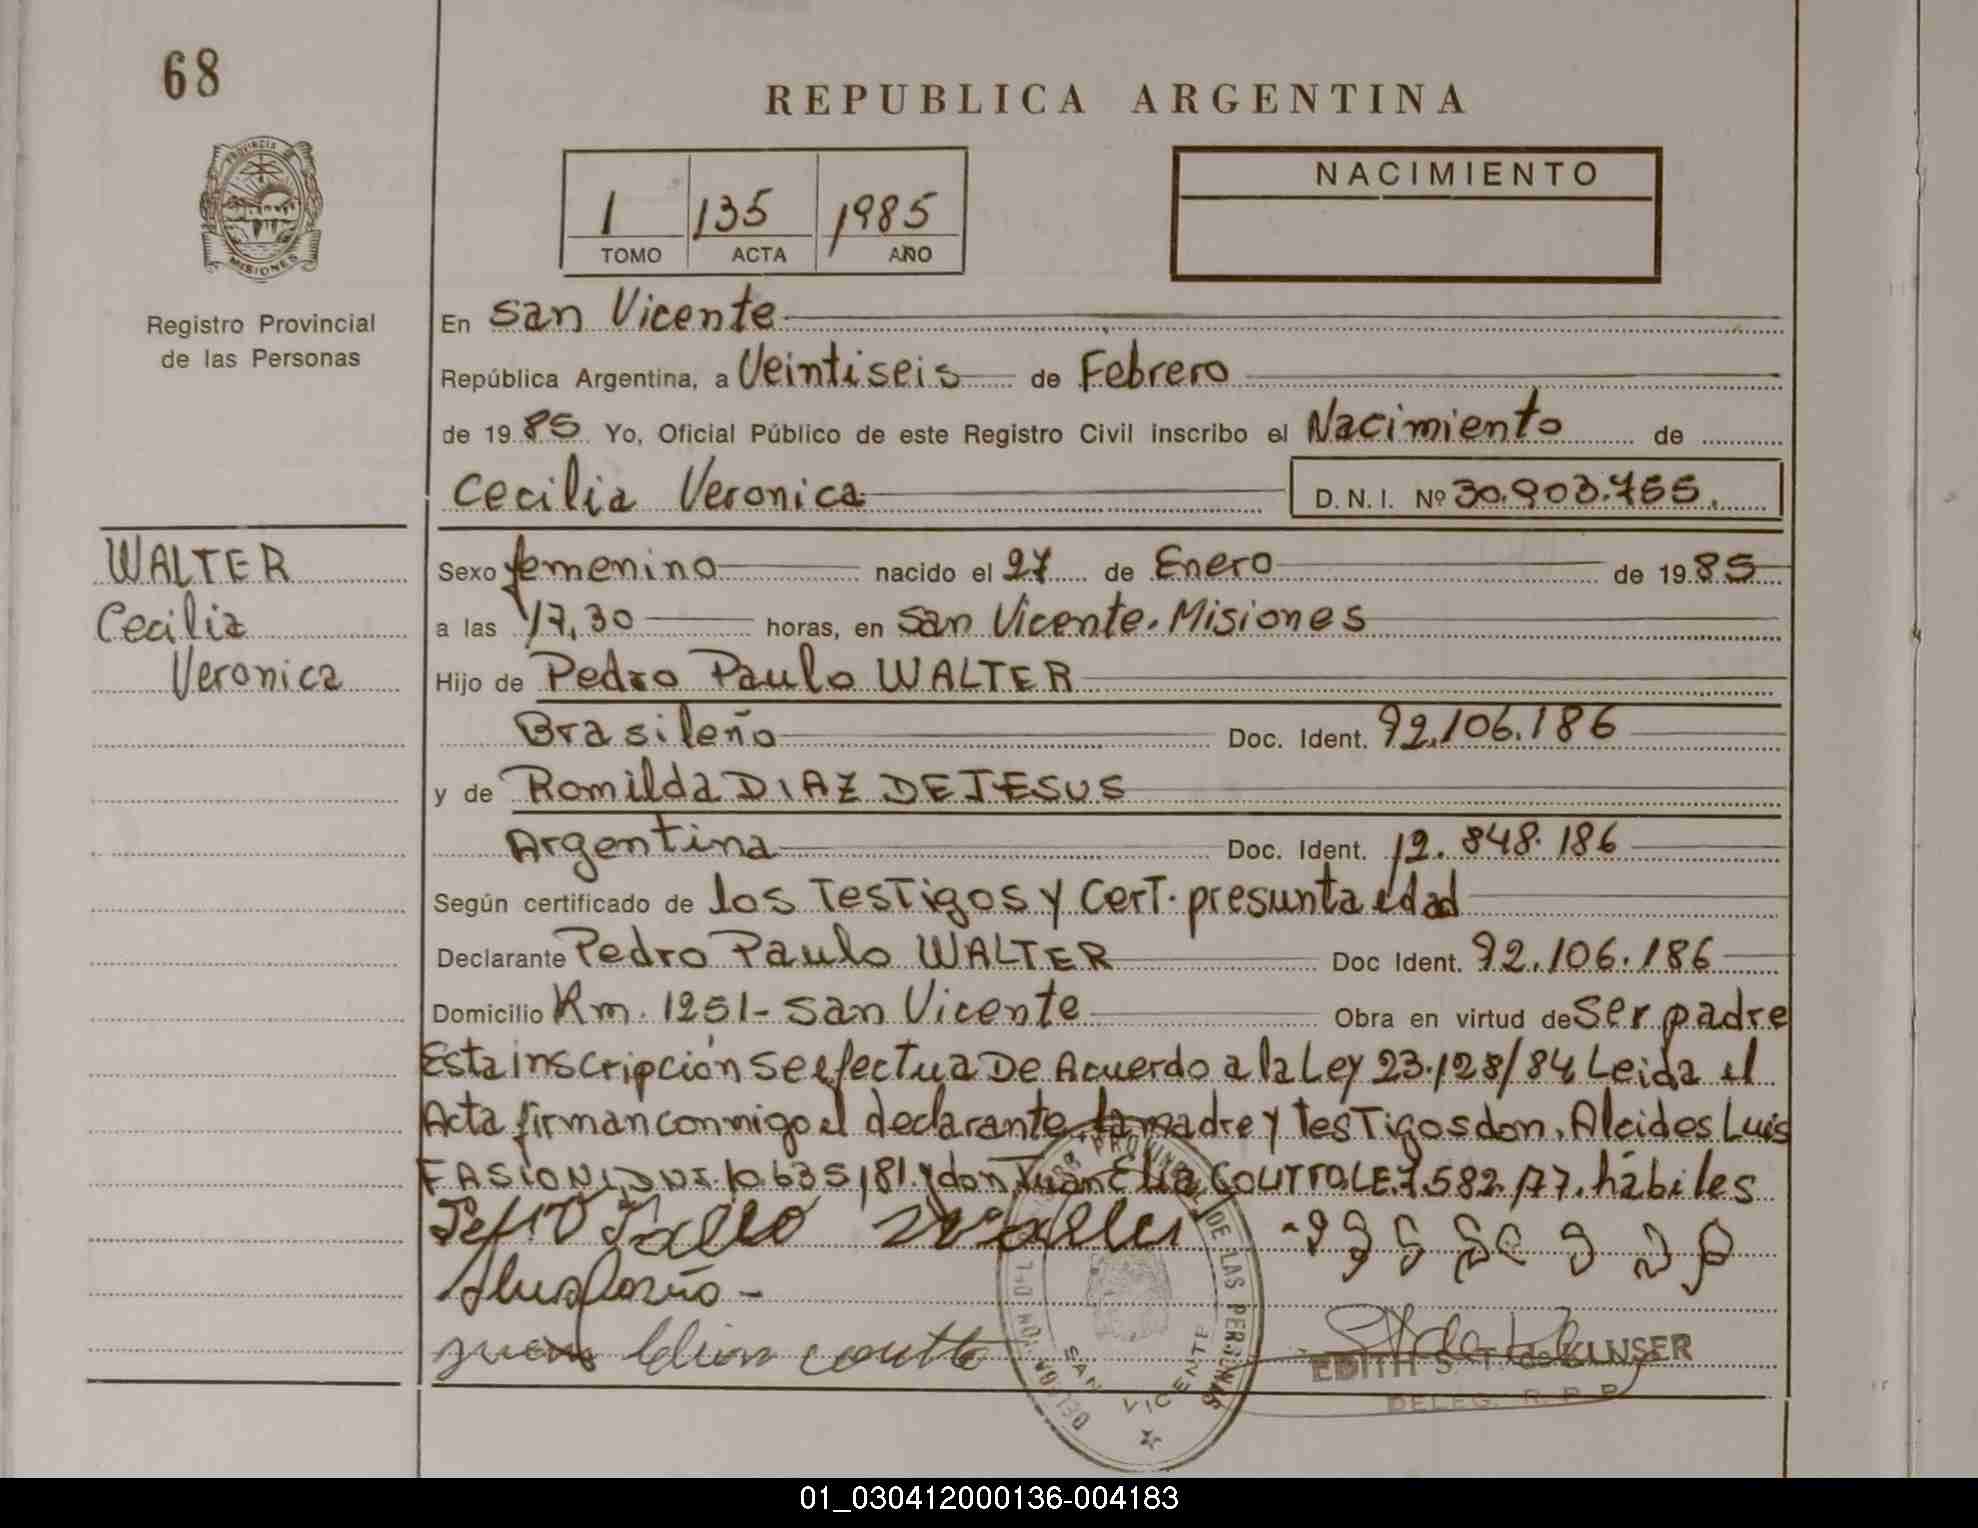 68
REPUBLICA ARGENTINA
PROVINCIA DE
MISIONES
Registro Provincial
de las Personas
1 135 1985
TOMO ACTA AÑO
NACIMIENTO
En San Vicente
República Argentina, a Veintiseis de Febrero
de 19 85 Yo, Oficial Público de este Registro Civil inscribo el Nacimiento de
Cecilia Veronica D.N.I. Nº 30.903.755.
WALTER
Cecilia
Veronica
Sexo femenino nacido el 27 de Enero de 19 85
a las 17,30 horas, en San Vicente. Misiones
Hijo de Pedro Paulo WALTER
Brasileño Doc. Ident. 92.106.186
y de Romilda DIAZ DE JESUS
Argentina Doc. Ident. 12.848.186
Según certificado de los Testigos y Cert. presunta edad
Declarante Pedro Paulo WALTER Doc Ident. 92.106.186
Domicilio Km. 1251- San Vicente Obra en virtud de ser padre
Esta inscripción se efectua De Acuerdo a la Ley 23.128/84 Leida el
Acta firman conmigo el declarante la madre y Testigos don. Alcides Luis
FASIONI, DNI. 10.635,181. y don Juan Elia COUTTO LE. 7.582.177. hábiles
EDITH S. T. de KLUSER
DELEG. R. P. P.
DE LAS PERSONAS
SAN VICENTE
01_030412000136-004183